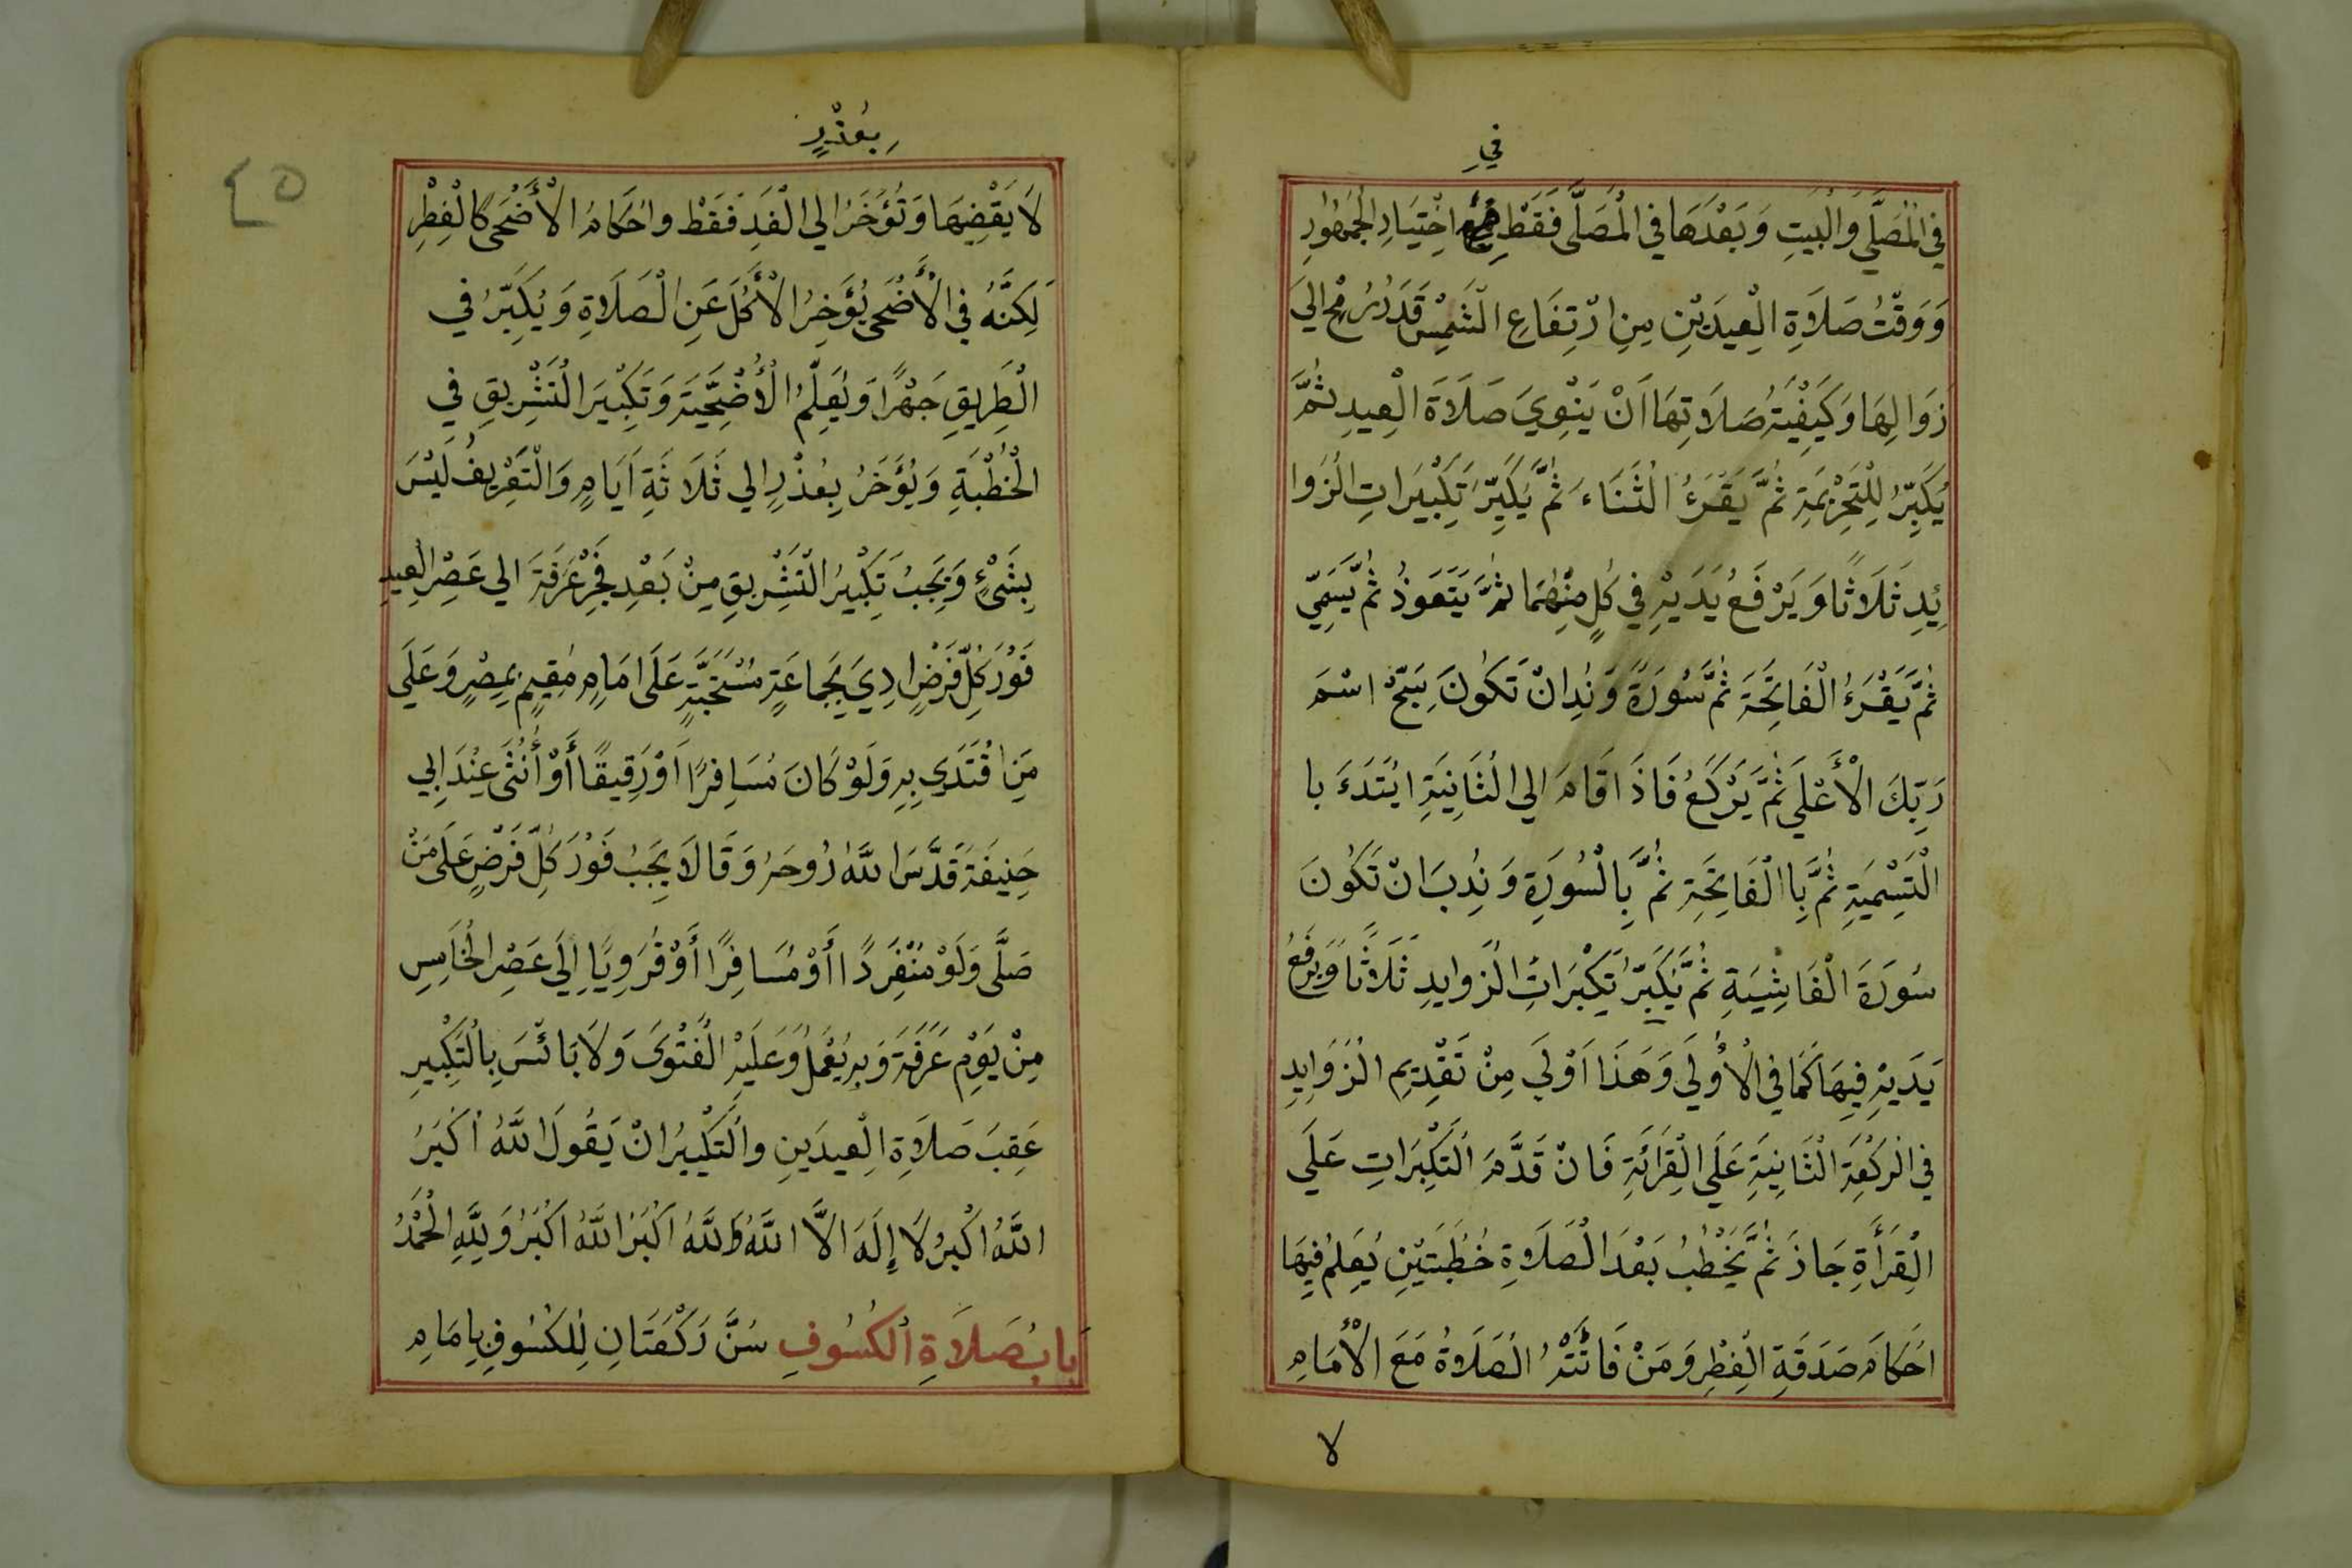 في
في الْمُصَلَّي وَالْبَيتِ وَبَعْدَهَا في الْمُصَلَّى فَقَطْ اخْتِيَارِ الْجُمْهُورِ
وَوَقْتُ صَلَاةِ الْعِيدَيْنِ مِنِ ارْتِفَاعِ الشَّمْسِ قَدَرَ رُمْحٍ اليَ
زَوَالِهَا وَكَيْفِيَّةُ صَلَاتِهَا اَنْ يَنْوِيَ صَلَاةَ الْعِيدِ ثُمَّ
يُكَبِّرُ لِلتَّحْرِيْمَةِ ثُمَّ يَقْرَءُ الثَّنَاءَ ثُمَّ يُكَبِّرُ تَكْبِيَراتِ الزَّوا
ئِدِ ثَلَاثًا وَيَرْفَعُ يَدَيْهِ في كُلٍ مِنْهُمَا ثُمَّ يَتَعَوذُ ثُمَّ يُسَمِّي
ثُمَّ يَقْرَءُ الْفَاتِحَةَ ثُمَّ سُورَةً وَنُدِ انْ تَكُونَ سَبِّحْ اسْمَ
رَبِّكَ الْأَعْلَي ثُمَّ يَرْكَعُ فَاذَا قَامَ الي الثَّانِيَةِ ابْتَدَءَ با
لْتَسْمِيَةِ ثُمَّ بِاالْفَاتِحَةِ ثُمَّ بِالسُّورَةِ وَنُدِبَ انْ تَكُونَ
سُورَةَ الْغَاشِيَةِ ثُمَّ يُكَبِّرُ تَكْبِرَاتِ الزَّوايدِ ثَلَاثًا وَيَرْفَعُ
يَدَيْهِ فِيهَا كَمَا في الْأُولَي وَهَذَا اَوْلَي مِنْ تَقْدِيمِ الزَّوَايِدِ
في الرَكْعَةِ الْثَّانِيَةِ عَلَي الْقِرَائَةِ فَانْ قَدَّمَ الْتَكْبِرَاتِ عَلَي
الْقِرَأَةِ جَازَ ثُمَّ يَخْطُبُ بَعْدَ الْصَلَاةِ خُطْبَتَيْنِ يُعَلِمُ فِيهَا
احَكَامَ صَدَقَةِ الْفِطْرِ وَمَنْ فَاتَتْهُ الْصَلَاةُ مَعَ الْأِمَامِ
لا
بِعُذْرٍ
٤٥
لَا يَقْضِيهَا وَتُؤَخَّرُ الي الْغَدِ فَقَطْ واحْكَامُ الْأَضْحَى كَالْفِطْرِ
لَكِنَّهُ في الْأَضْحَى يُؤَخِرُ الْأَكْلَ عَنِ الْصَلَاةِ وَيُكَبِّرُ في
الْطَرِيقِ جَهْرًا وَيُعَلِّمُ الْأُضْحِيَّةَ وَتَكْبِيَر الْتَشْرِيقِ في
الْخُطْبَةِ وَيُؤَخَرُ بِعُذْرٍ الي ثَلَاثَةِ اَيَامٍ وَالْتَعْرِيفُ لَيْسَ
بِشَىْءٍ وَيَجِبُ تَكْبِيْرُ الْتَشْرِيقِ مِنْ بَعْدِ فَجْرِ عَرَفَةَ الي عَصْرِ الْعِيدِ
فَوْرَ كُلِّ فَرْضٍ ادِيَ بِجَمَاعَةٍ مُسْتَحَبَّةٍ عَلَى امَامٍ مُقِيمٍ بِمِصْرٍ وَعَلَي
مَنِ اقْتَدَي بِهِ وَلَوْ كَانَ مُسَافِرًا اَوْ رَقِيقًا أَوْ أُنْثَى عِنْدَ ابِي
حَنِيفَةَ قَدَّسَ اللَّهُ رُوحَهُ وَقَالَا يَجِبُ فَوْرَ كُلِّ فَرْضٍ عَلَى مَنْ
صَلَّى وَلَوْ مُنْفَرِدًا أَوْ مُسَافِرًا أَوْ قُرَوِيًا إِلَي عَصْرِ الْخَامِسِ
مِنْ يَوْمِ عَرَفَةَ وَبِهِ يُعْمَلُ وَعَلَيْهِ الْفَتْوَى وَلَا بَائسَ بِالْتَكْبِيرِ
عَقِبَ صَلَاةِ الْعِيدَينِ والْتَكْبِيُر انْ يَقُولَ اللَّهُ اكْبَرُ
اللَّهُ اكْبرُ لَا إِلَهَ الَّا اللَّهُ وَاللَّهُ اَكْبَرُ اللَّهُ اكْبَرُ وَلِلَّهِ الْحَمْدُ
بَابُ صَلَاةِ الْكُسُوفِ سُنَّ رَكْعَتَانِ لِلكُسُوفِ بِامَامِ